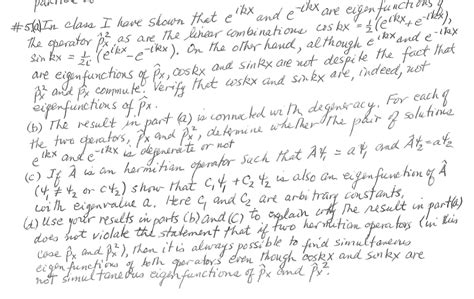 #5(a) In class I have shown that e^{ikx} and e^{-ikx} are eigenfunctions of
the operator p̂_x^2 as are the linear combinations cos kx = ½(e^{ikx}+e^{-ikx}),
sin kx = 1/2i (e^{ikx}-e^{-ikx}). On the other hand, although e^{ikx} and e^{-ikx}
are eigenfunctions of p̂_x, coskx and sinkx are not despite the fact that
p̂_x^2 and p̂_x commute. Verify that coskx and sinkx are, indeed, not
eigenfunctions of p̂_x.
(b) The result in part (a) is connected with degeneracy. For each of
the two operators, p̂_x and p̂_x^2, determine whether the pair of solutions
e^{ikx} and e^{-ikx} is degenerate or not
(c) If Â is an hermitian operator such that Âψ₁ = aψ₁ and Âψ₂ = aψ₂
(ψ₁ ≠ ψ₂ or cψ₂) show that C₁ψ₁ + C₂ψ₂ is also an eigenfunction of Â
with eigenvalue a. Here C₁ and C₂ are arbitrary constants,
(d) Use your results in parts (b) and (c) to explain why the result in part(a)
does not violate the statement that if two hermitian operators (in this
case p̂_x and p̂_x^2), then it is always possible to find simultaneous
eigenfunctions of both operators even though coskx and sinkx are
not simultaneous eigenfunctions of p̂_x and p̂_x^2.